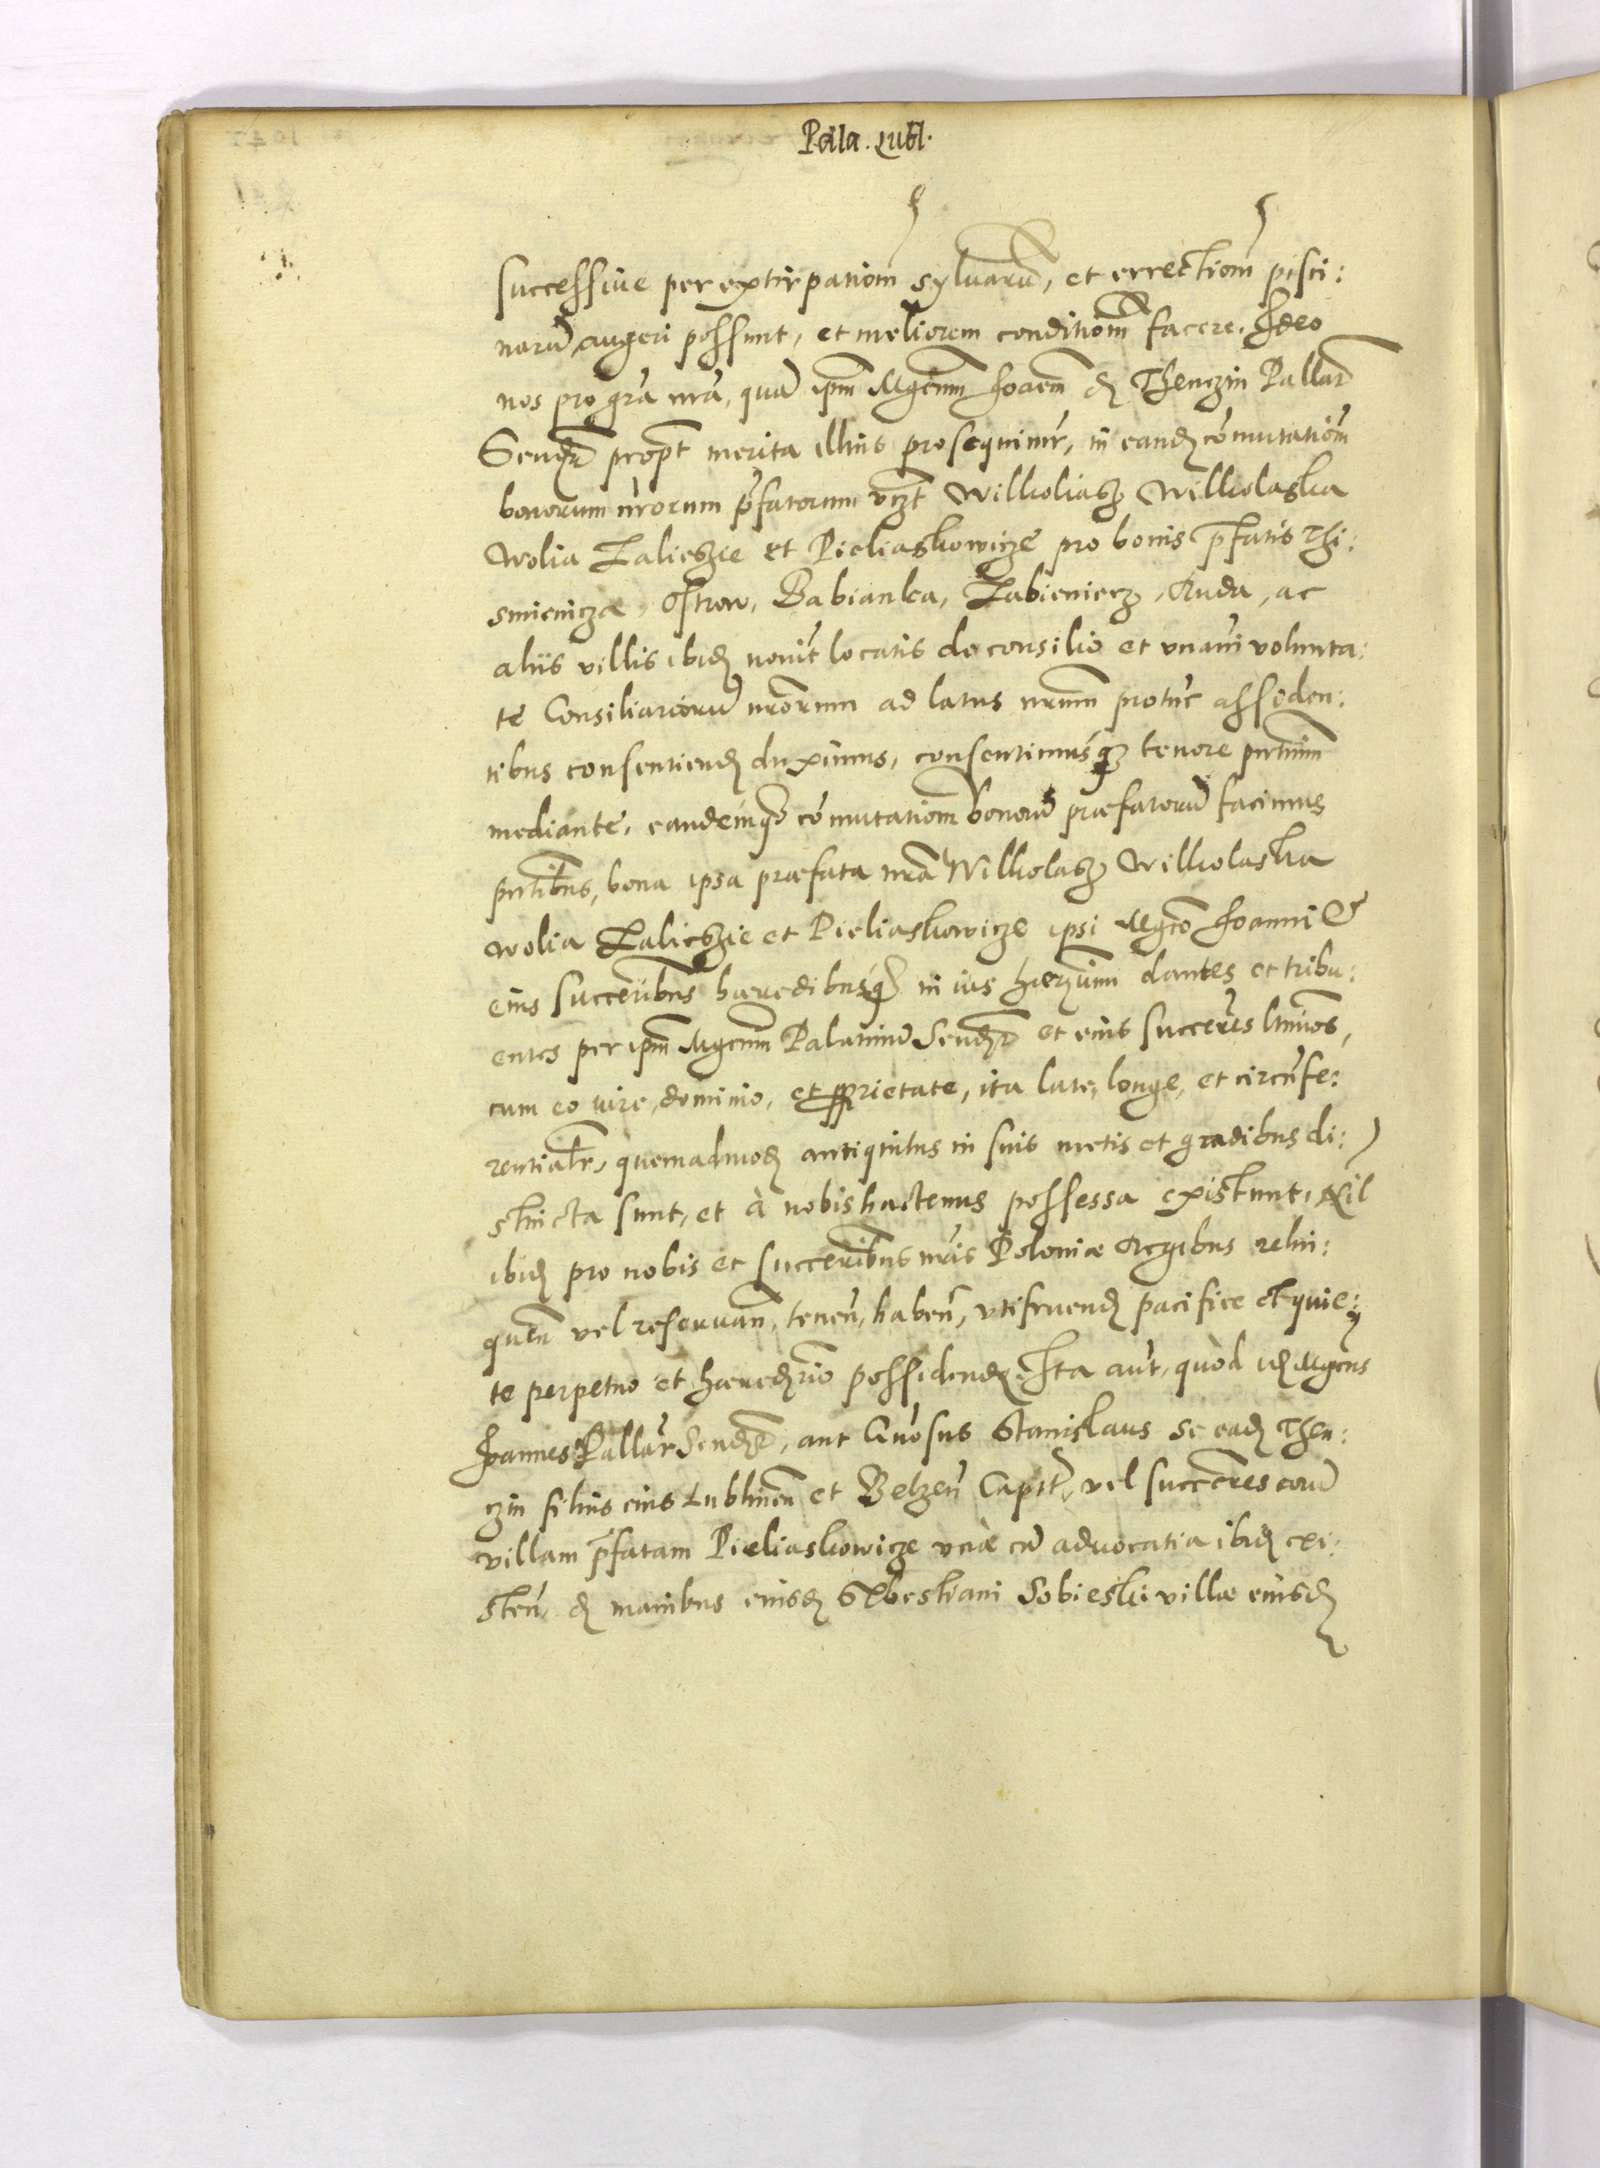 Pala. Lubl.
successiue per extirpationem syluarū, et errectionem pisci:
narū augeri possunt, et meliorem conditionem facere. Ideo
nos pro gra nrā, quā ipm Mgcum Joanem de Thenczin Pallat
Sendr propt merita illius prosequimr, in eandē comutationem
bonorum nrorum pfatorum vcźt Wilkoliasz Wilkolaska
Wolia Zalieszie et Pieliaskowicze pro bonis pfatis Thi:
smienicza, Ostrow, Babianka, Labieniecz, Ruda, ac
aliis villis ibidē nouit locatis de consilio et vnanī volunta:
te Consiliariorū nrorum ad latus nrum protūc assiden:
tibus consentiendū duximus, consentimusq tenore pntium
mediante, eandemq comutationem bonorū præfatorū facimus
pntibus, bona ipsa præfata nrā Wilkolasz Wilkolaska
wolia Zalieszie et Pieliaskowicze ipsi Mgco Joanni &
eius succeribus hæredibusq in ius hærium dantes et tribu:
entes per ipm Mgcum Palatinū Sendr et eius succeres ltimos,
cum eo iure, dominio, et pprietate, ita late, longe, et circūfe:
rentialr, quemadmodū antiquitus in suis metis et gradibus di:
stincta sunt, et à nobis hactenus possessa existunt, Nil
ibidē pro nobis et succeribus nris Poloniæ Regibus relin:
quen vel reseruan, tenen, haben, vtifruendū pacifice et quie:
te perpetuo et hæredrio possidendū. Ita aūt, quòd idē Mgcus
Joannes Pallat Sendr, aut Gnosus Stanislaus de eadē Then:
czin filius eius Lublinen et Belzen Capit, vel succeres eorū
villam pfatam Pieliaskowicze vnà cū aduocatia ibidē exi:
sten, de manibus eiusdē Sebestiani Sobieski villæ eiusdē